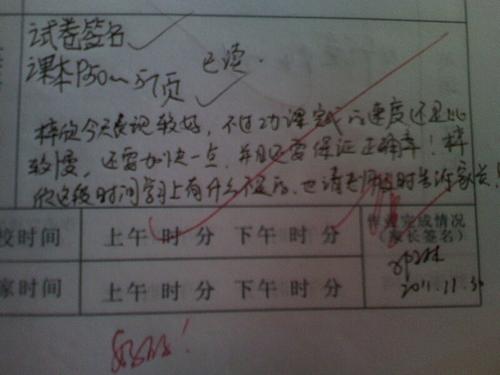 试卷签名
课本P50~57页
已读.
梓欣今天表现较好,不过功课完成的速度还是比
较慢,还需加快一点,并且还要保证正确率!梓
欣这段时间学习上有什么不足的,也请老师及时告诉家长!
校时间 上午 时 分 下午 时 分 作业完成情况
(家长签名)
家时间 上午 时 分 下午 时 分
2011.11.30